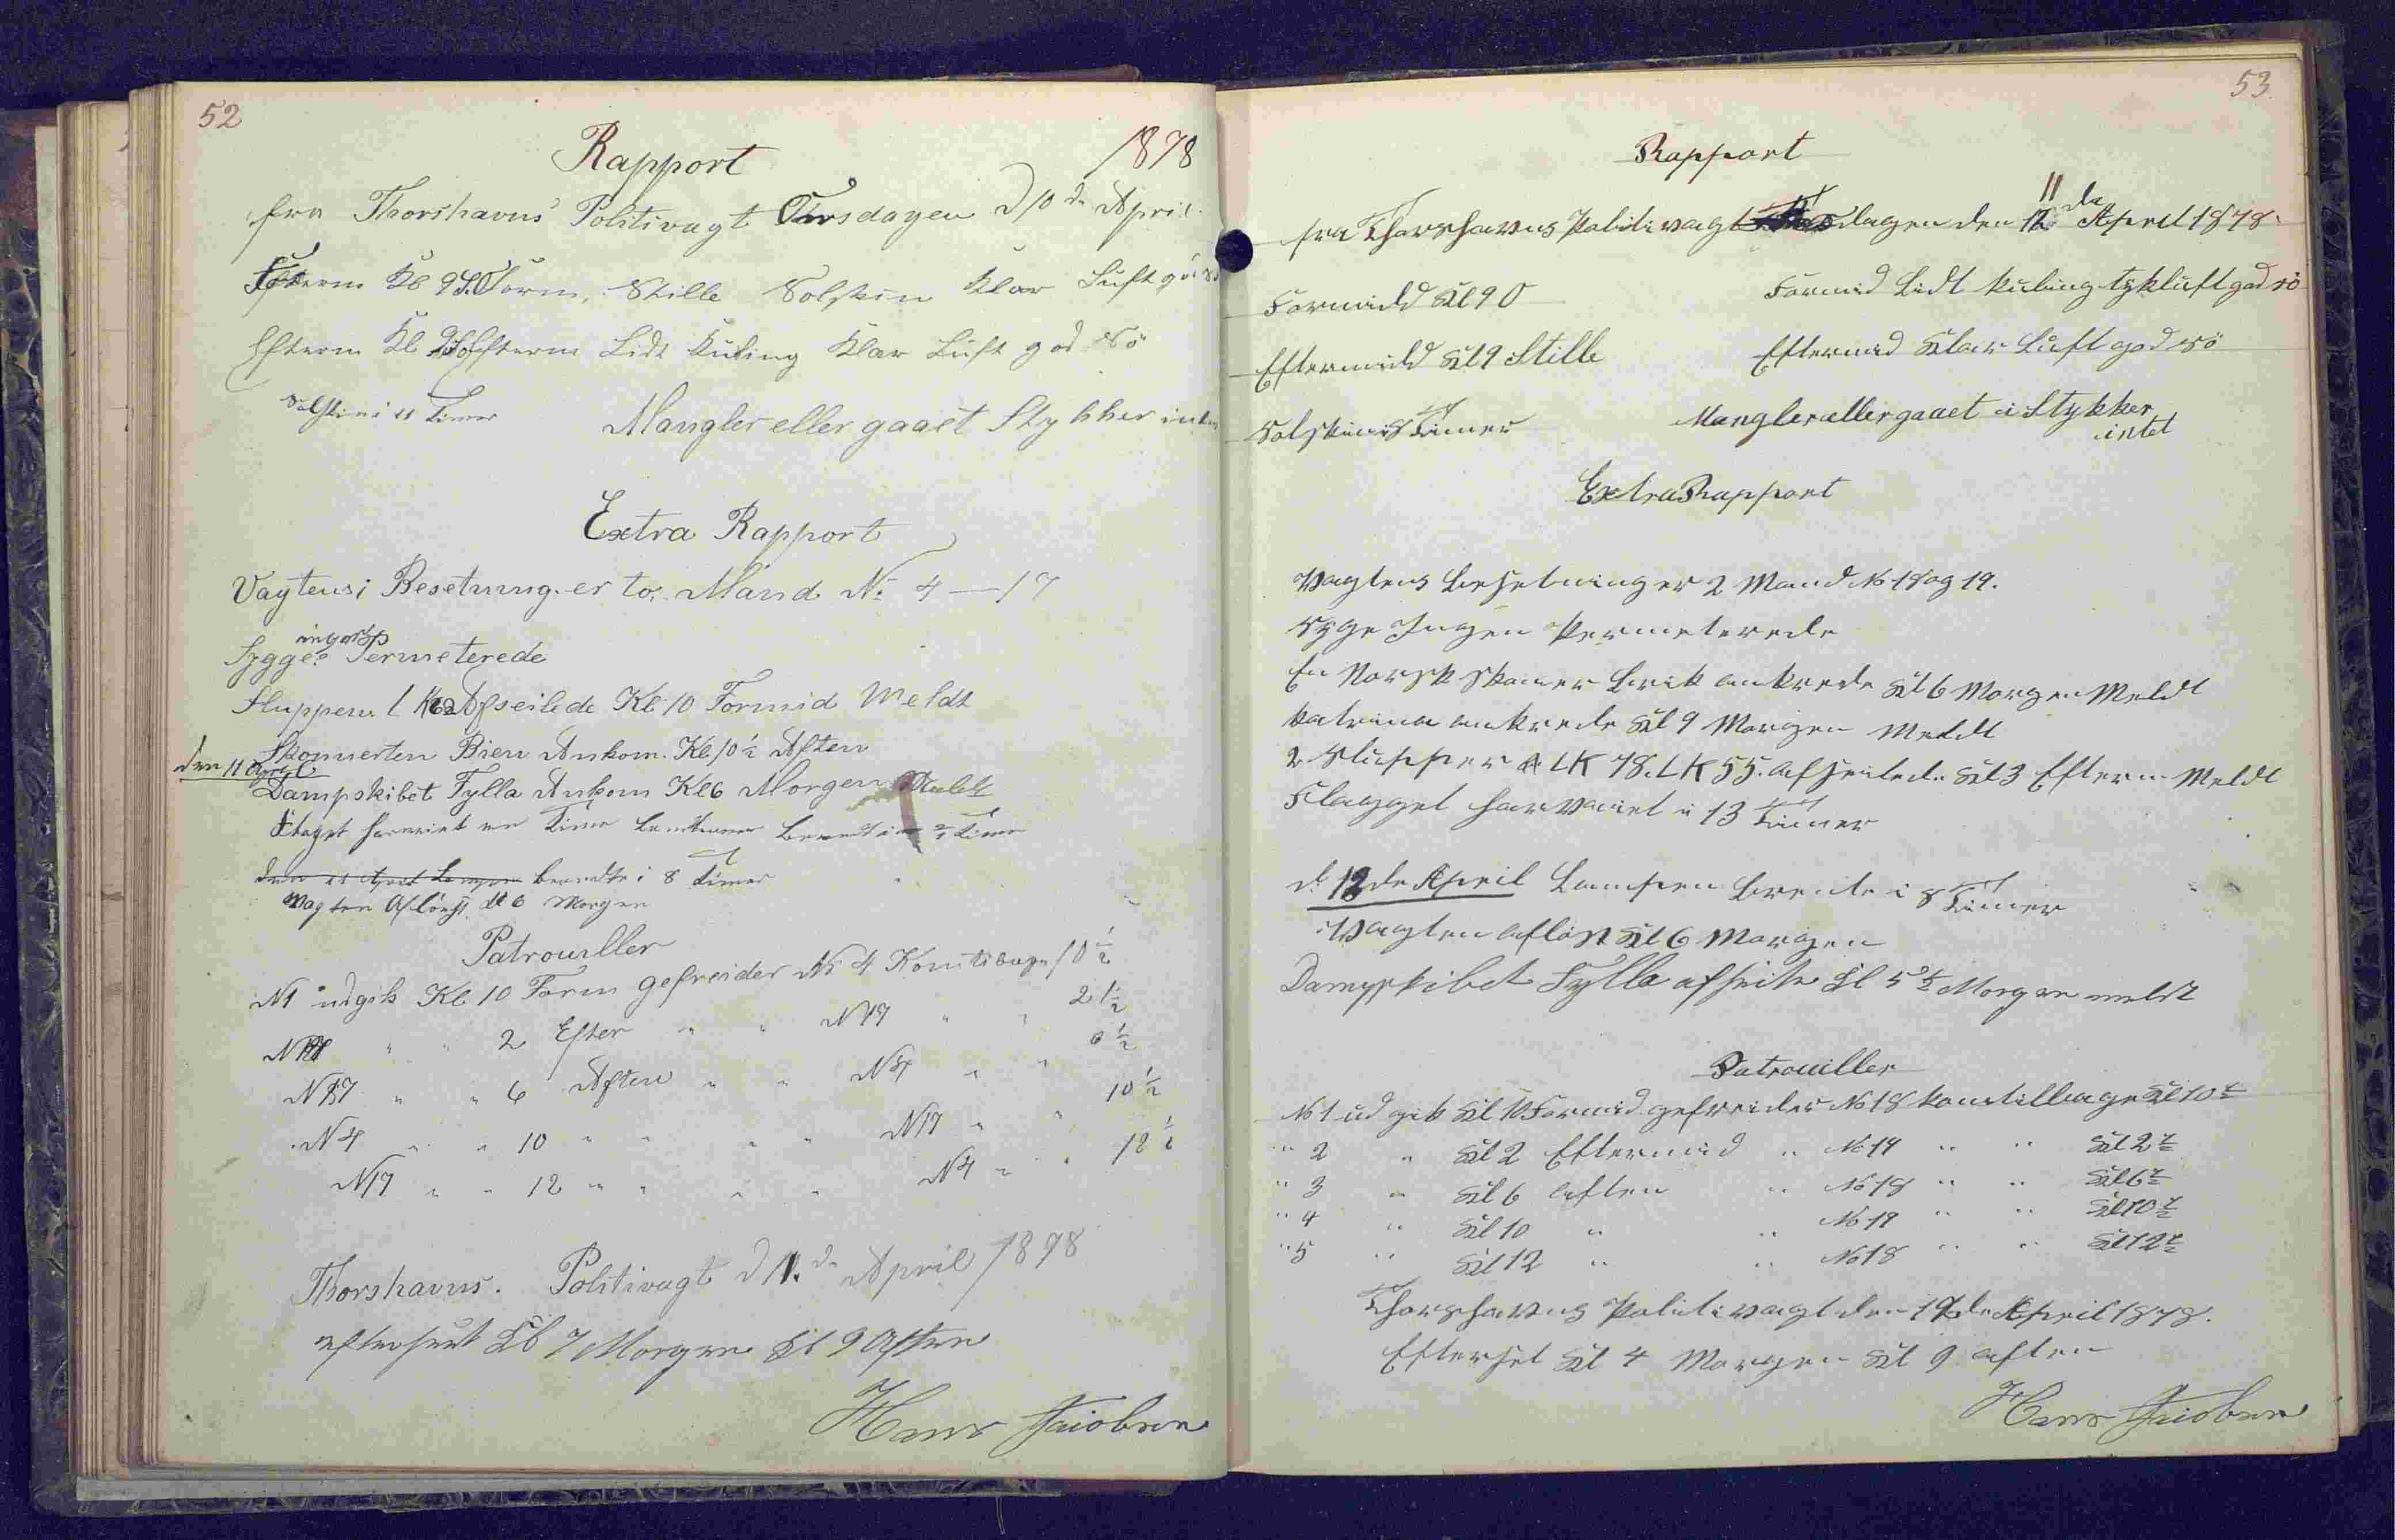 52
Rapport 1878
fra Thorshavns Politivagt Torsdagen d 10 de April.
Kl 9 Form, Stille Solskin Klar Luft god Sö
Efterm Kl 9 Efterm Lidt Kuling Klar Luft god Sö
Solskin i 11 Timer Mangler eller gaaet Stykker intet
Extra Rapport
Vagtens Besetning er to Mand No 4 — 17
Sygge ingen Permeterede
Sluppen L K 62 Afseilede Kl 10 Formid Meldt
Skonnerten Bien Ankom. Kl 10 1/2 Aften
den 11 April
Dampskibet Fylla Ankom Kl 6 Morgen Meldt
Flaget har veiet Timer Lanternen Brændt i Timer
den 11 April Lampen brændte i 8 Timer
Vagten Aflöst Kl 6 Morgen
Patrouiller
N 1 udgik Kl 10 Form gefreider No 4 Kom tibage 10 1/2
" " 2 Efter " " N 17 " " 2 1/2
N 17 " " 6 Aften " " N 4 " " 6 1/2
N 4 " " 10 " " " " N 17 " " 10 1/2
N 17 " " 12 " " " " N 4 " " 12 1/2
Thorshavns. Politivagt d 11. de April 1878
efterseet Kl 7 Morgen Kl 9 Aften
Hans Jacobsen
53.
Rapport
fra Thorshavns Politivagt dagen den 11 de April 1878.
Formidd Kl 9 0 Formid Lidt kuling tykluft god sö
Eftermidd Kl 9 Stille Eftermid Klar Luft god sö
Solskin i 8 Timer Mangler eller gaaet i Stykker
intet
Extra Rapport
Vagtens Besetning er 2 Mand No 18 og 19.
Syge Ingen Permeterede
En Norsk Skoner Brik ankrede Kl 6 Morgen Meldt
Katrina ankrede Kl 9 Morgen Meldt
2 Slupper LK 78. LK 55. afseilede Kl 3 Efterm Meldt
Flagget har vaiet i 13 Timer
d. 12 de April Lampen brente i 8 Timer
Vagten aflöst Kl 6 Morgen
Dampskibet Fylla afseile Kl 5 1/2 Morgen meldt
Patrouiller
No 1 ud gik Kl 10 Formid gefreider No 18 kom tilbage Kl 10 1/2
" 2 " Kl 2 Eftermid " No 19 " " Kl 2 1/2
" 3 " Kl 6 aften " No 18 " " Kl 6 1/2
" 4 " Kl 10 " " No 19 " " Kl 10 1/2
" 5 " Kl 12 " " No 18 " " Kl 12 1/2
Thorshavns Politivagt den 12 de April 1878.
Efterset Kl 4 Morgen Kl 9 aften
Hans Jacobsen